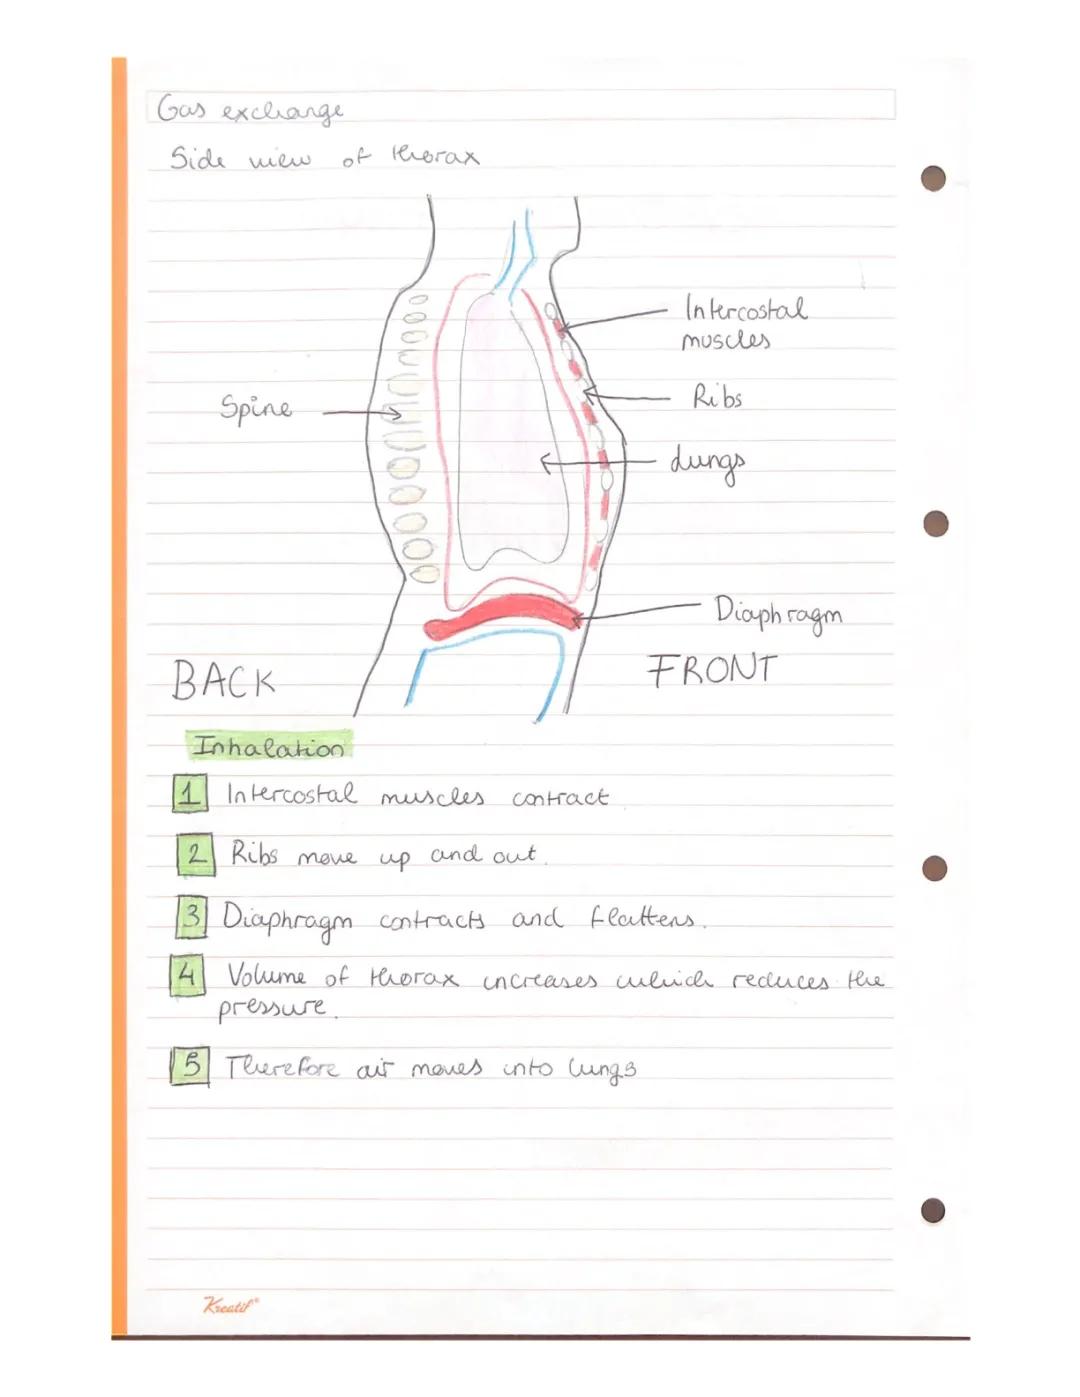 Gas exchange
Side view of thorax
Intercostal
muscles
Ribs
Spine
Lungs
Diaphragm
BACK
FRONT
Inhalation
1 Intercostal muscles contract
2 Ribs move up and out.
3 Diaphragm contracts and flattens.
4 Volume of thorax increases which reduces the
pressure.
5 Therefore air moves into lungs
Kreatif®